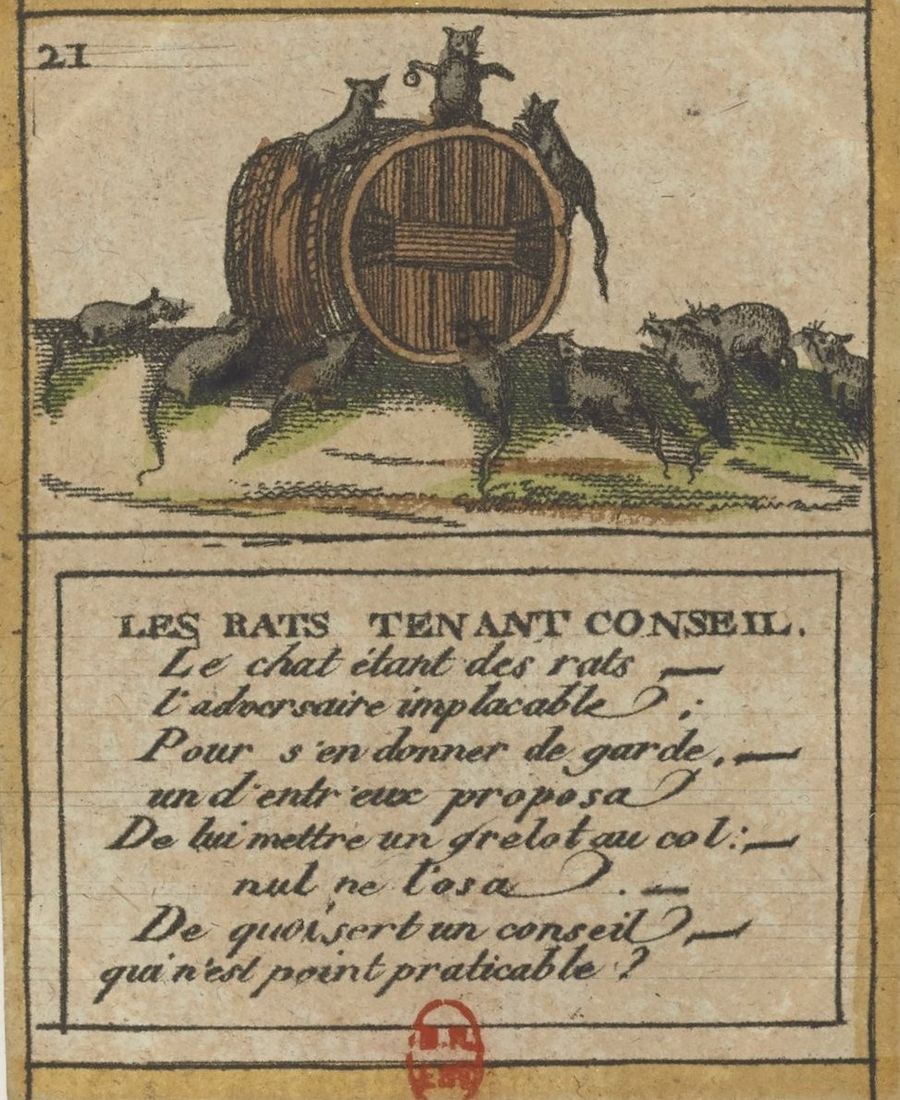 21
LES RATS TENANT CONSEIL.
Le chat étant des rats —
l'adversaire implacable ;
Pour s'en donner de garde, —
un d'entr'eux proposa
De lui mettre un grelot au col: —
nul ne l'osa . —
De quoi sert un conseil, —
qui n'est point praticable ?